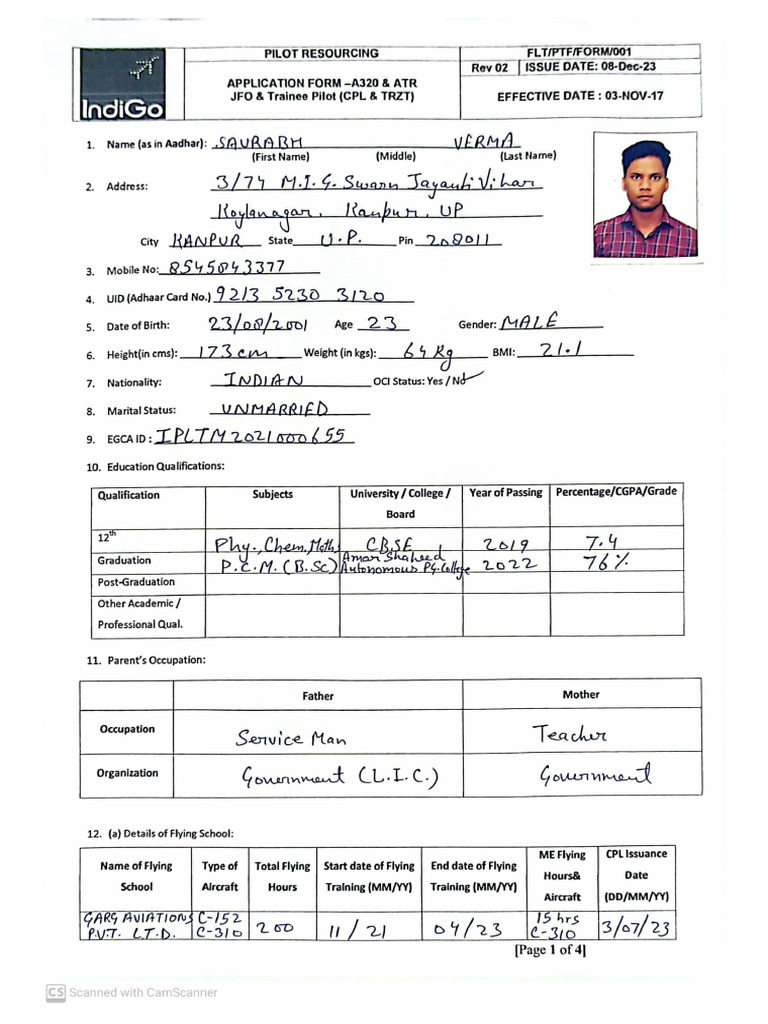 IndiGo
PILOT RESOURCING
APPLICATION FORM –A320 & ATR
JFO & Trainee Pilot (CPL & TRZT)
FLT/PTF/FORM/001
Rev 02 ISSUE DATE: 08-Dec-23
EFFECTIVE DATE : 03-NOV-17
1. Name (as in Aadhar): SAURABH VERMA
(First Name) (Middle) (Last Name)
2. Address: 3/74 M.I.G. Swarn Jayanti Vihar
Koylanagar, Kanpur, UP
City KANPUR State U.P. Pin 208011
3. Mobile No: 8545843377
4. UID (Adhaar Card No.) 9213 5230 3120
5. Date of Birth: 23/08/2001 Age 23 Gender: MALE
6. Height(in cms): 173 cm Weight (in kgs): 64 Kg BMI: 21.1
7. Nationality: INDIAN OCI Status: Yes / No
8. Marital Status: UNMARRIED
9. EGCA ID : IPLTM2021000655
10. Education Qualifications:
Qualification Subjects University / College / Board Year of Passing Percentage/CGPA/Grade
12th Phy., Chem. Math CBSE 2019 7.4
Graduation P.C.M. (B.Sc) Amar Shaheed Autonomous PG. College 2022 76%
Post-Graduation
Other Academic /
Professional Qual.
11. Parent's Occupation:
Father Mother
Occupation Service Man Teacher
Organization Government (L.I.C.) Government
12. (a) Details of Flying School:
Name of Flying School Type of Aircraft Total Flying Hours Start date of Flying Training (MM/YY) End date of Flying Training (MM/YY) ME Flying Hours& Aircraft CPL Issuance Date (DD/MM/YY)
GARG AVIATIONS C-152 200 11/21 04/23 15 hrs 3/07/23
P.V.T. L.T.D. C-310 C-310
[Page 1 of 4]
CS Scanned with CamScanner